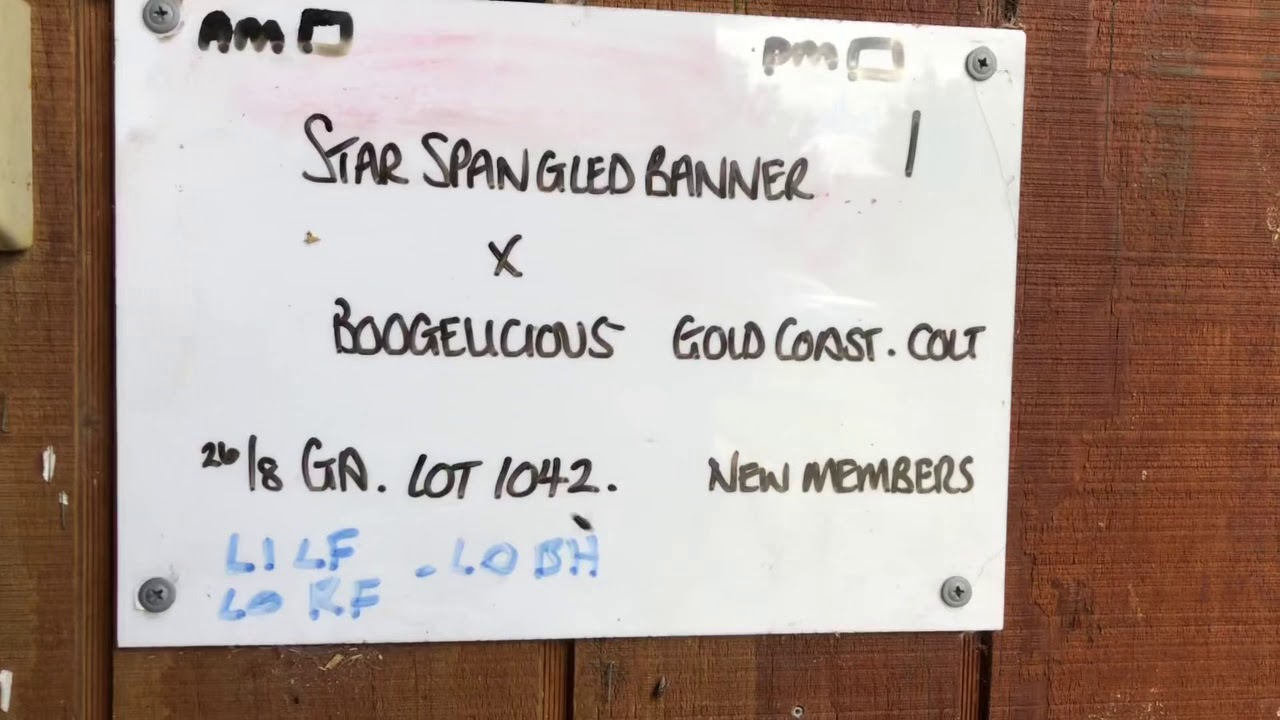 AM PM
STAR SPANGLED BANNER 1
X
BOOGELICIOUS GOLD COAST. COLT
26/8 GA. LOT 1042. NEW MEMBERS
L1 LF . LO BH
LO RF